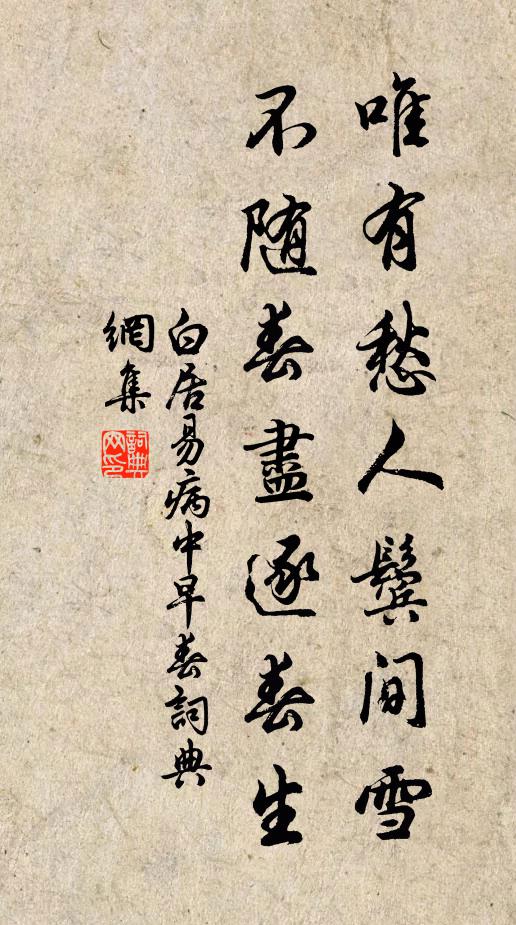 唯有愁人鬓間雪
不随春盡逐春生
白居易病中早春詞典
網集
詞典网印